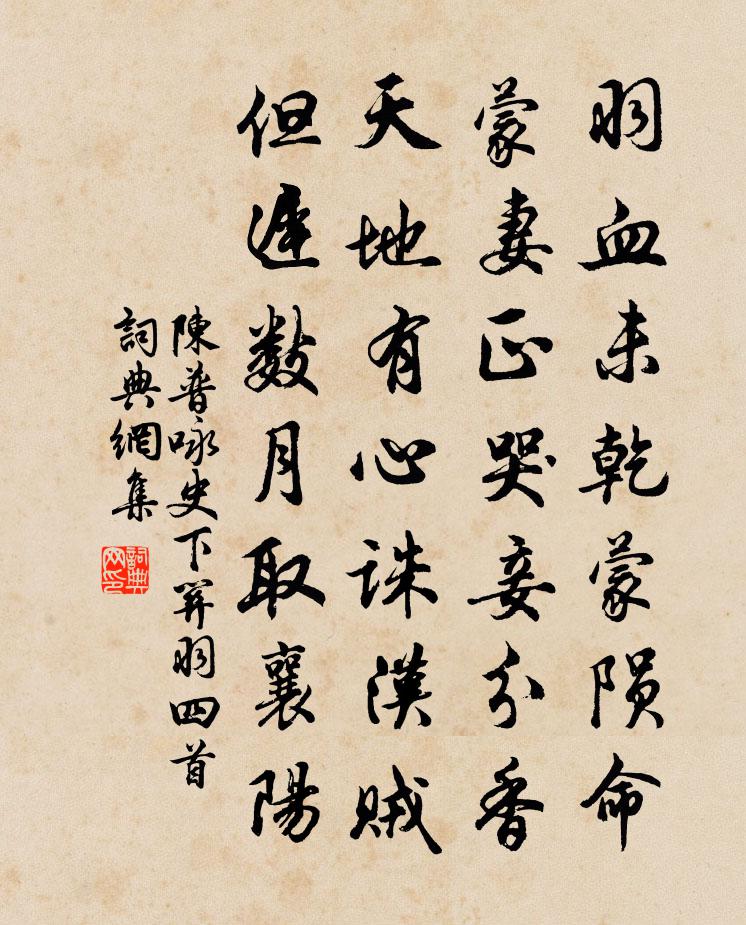 羽血未乾蒙陨命
蒙妻正哭妾分香
天地有心誅漢賊
但遲数月取襄陽
陳普咏史下关羽四首
詞典網集
詞典网印